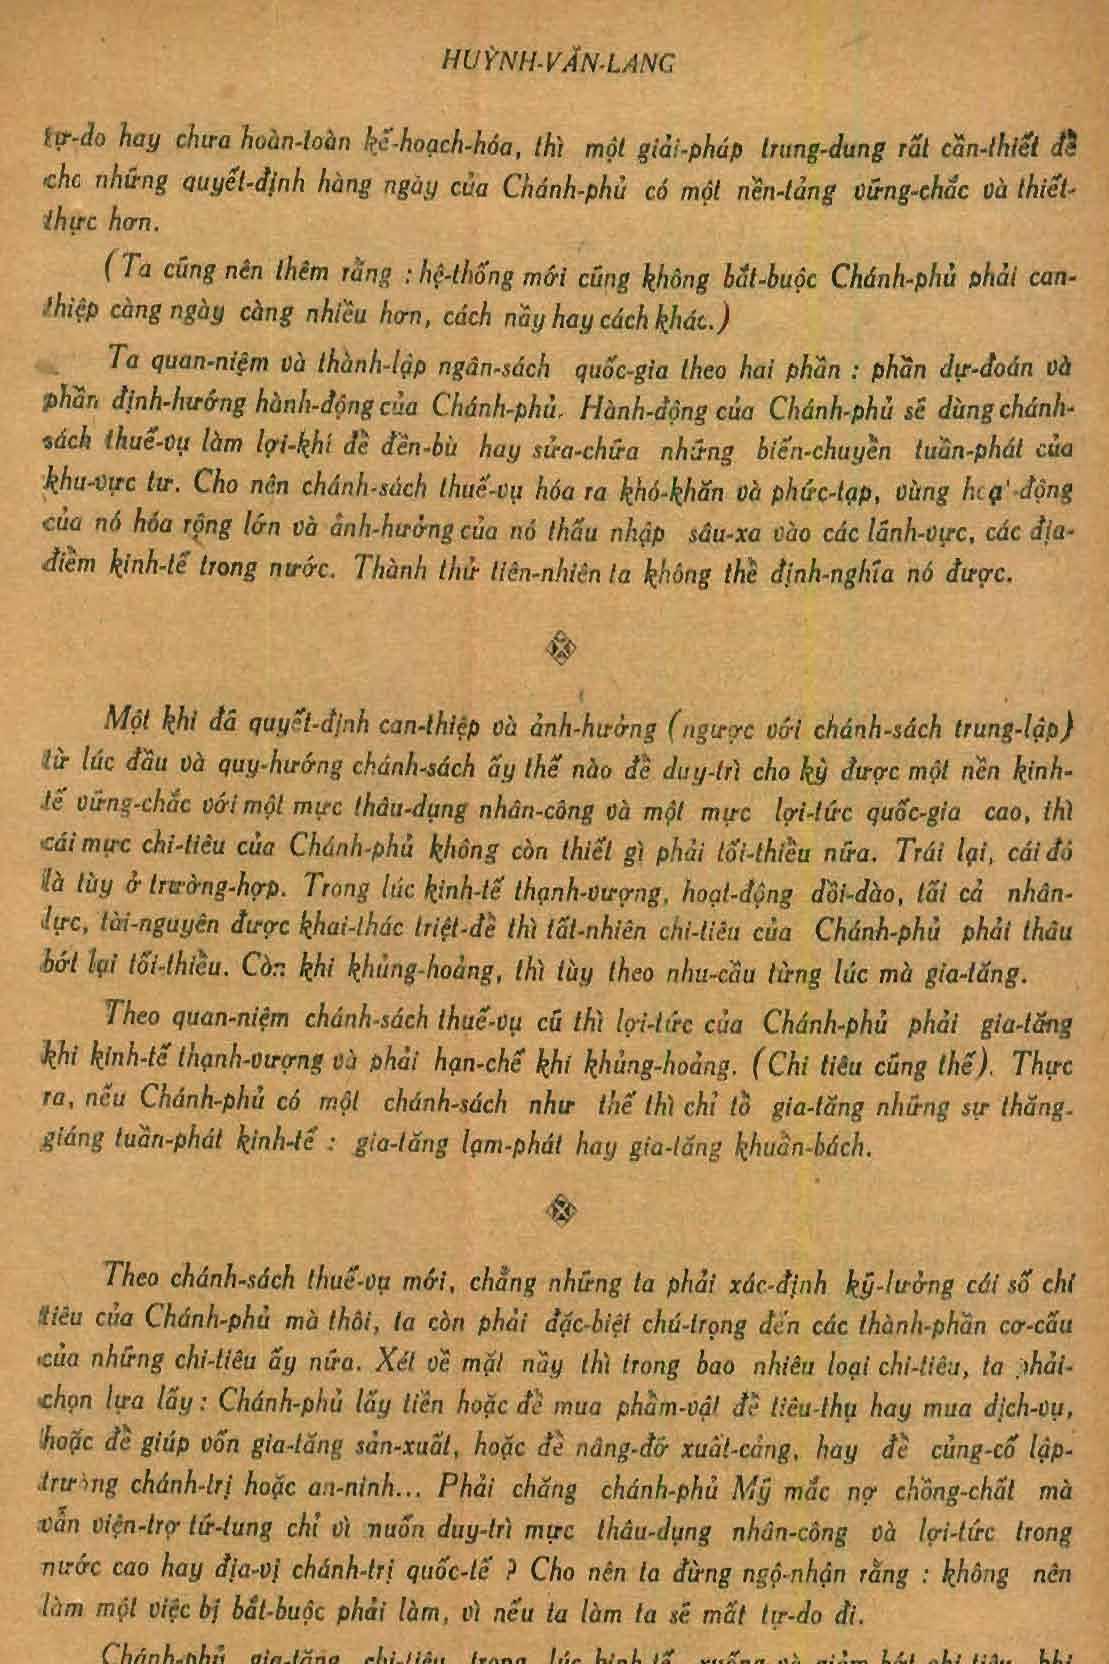 HUỲNH-VĂN-LANG
tự-do hay chưa hoàn-toàn kế-hoạch-hóa, thì một giải-pháp trung-dung rất cần-thiết để
cho những quyết-định hàng ngày của Chánh-phủ có một nền-tảng vững-chắc và thiết-
thực hơn.
(Ta cũng nên thêm rằng : hệ-thống mới cũng không bắt-buộc Chánh-phủ phải can-
thiệp càng ngày càng nhiều hơn, cách nầy hay cách khác.)
Ta quan-niệm và thành-lập ngân-sách quốc-gia theo hai phần : phần dự-đoán và
phần định-hướng hành-động của Chánh-phủ. Hành-động của Chánh-phủ sẽ dùng chánh-
sách thuế-vụ làm lợi-khí để đền-bù hay sửa-chữa những biến-chuyển tuần-phát của
khu-vực tư. Cho nên chánh-sách thuế-vụ hóa ra khó-khăn và phức-tạp, vùng hoạt-động
của nó hóa rộng lớn và ảnh-hưởng của nó thấu nhập sâu-xa vào các lãnh-vực, các địa-
điểm kinh-tế trong nước. Thành thử tiên-nhiên ta không thể định-nghĩa nó được.
Một khi đã quyết-định can-thiệp và ảnh-hưởng (ngược với chánh-sách trung-lập)
từ lúc đầu và quy-hướng chánh-sách ấy thế nào để duy-trì cho kỳ được một nền kinh-
tế vững-chắc với một mực thâu-dụng nhân-công và một mực lợi-tức quốc-gia cao, thì
cái mực chi-tiêu của Chánh-phủ không còn thiết gì phải tối-thiểu nữa. Trái lại, cái đó
là tùy ở trường-hợp. Trong lúc kinh-tế thạnh-vượng, hoạt-động dồi-dào, tất cả nhân-
lực, tài-nguyên được khai-thác triệt-để thì tất-nhiên chi-tiêu của Chánh-phủ phải thâu
bớt lại tối-thiểu. Còn khi khủng-hoảng, thì tùy theo nhu-cầu từng lúc mà gia-tăng.
Theo quan-niệm chánh-sách thuế-vụ cũ thì lợi-tức của Chánh-phủ phải gia-tăng
khi kinh-tế thạnh-vượng và phải hạn-chế khi khủng-hoảng. (Chi tiêu cũng thế). Thực
ra, nếu Chánh-phủ có một chánh-sách như thế thì chỉ tổ gia-tăng những sự thăng-
giáng tuần-phát kinh-tế : gia-tăng lạm-phát hay gia-tăng khuẩn-bách.
Theo chánh-sách thuế-vụ mới, chẳng những ta phải xác-định kỹ-lưỡng cái số chi
tiêu của Chánh-phủ mà thôi, ta còn phải đặc-biệt chú-trọng đến các thành-phần cơ-cấu
của những chi-tiêu ấy nữa. Xét về mặt nầy thì trong bao nhiêu loại chi-tiêu, ta phải-
chọn lựa lấy : Chánh-phủ lấy tiền hoặc để mua phẩm-vật để tiêu-thụ hay mua dịch-vụ,
hoặc để giúp vốn gia-tăng sản-xuất, hoặc để nâng-đỡ xuất-cảng, hay để củng-cố lập-
trường chánh-trị hoặc an-ninh... Phải chăng chánh-phủ Mỹ mắc nợ chồng-chất mà
vẫn viện-trợ tứ-tung chỉ vì muốn duy-trì mực thâu-dụng nhân-công và lợi-tức trong
nước cao hay địa-vị chánh-trị quốc-tế ? Cho nên ta đừng ngộ-nhận rằng : không nên
làm một việc bị bắt-buộc phải làm, vì nếu ta làm ta sẽ mất tự-do đi.
Chánh-phủ gia-tăng chi-tiêu trong lúc kinh-tế xuống và giảm bớt chi-tiêu khi